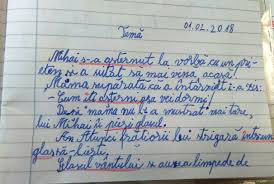 Temă
01.02.2018
Mihai s-a așternut la vorbă cu un pri-
eten și a uitat să mai vină acasă!
Mama supărată că a întârziat i-a zis:
- Cum îți așterni așa vei dormi!
Dacă mama nu l-a mustrat mai tare,
lui Mihai îi pieri glasul.
Atunci frățiorii lui strigară într-un
glas
Glasul vântului se auzea limpede de